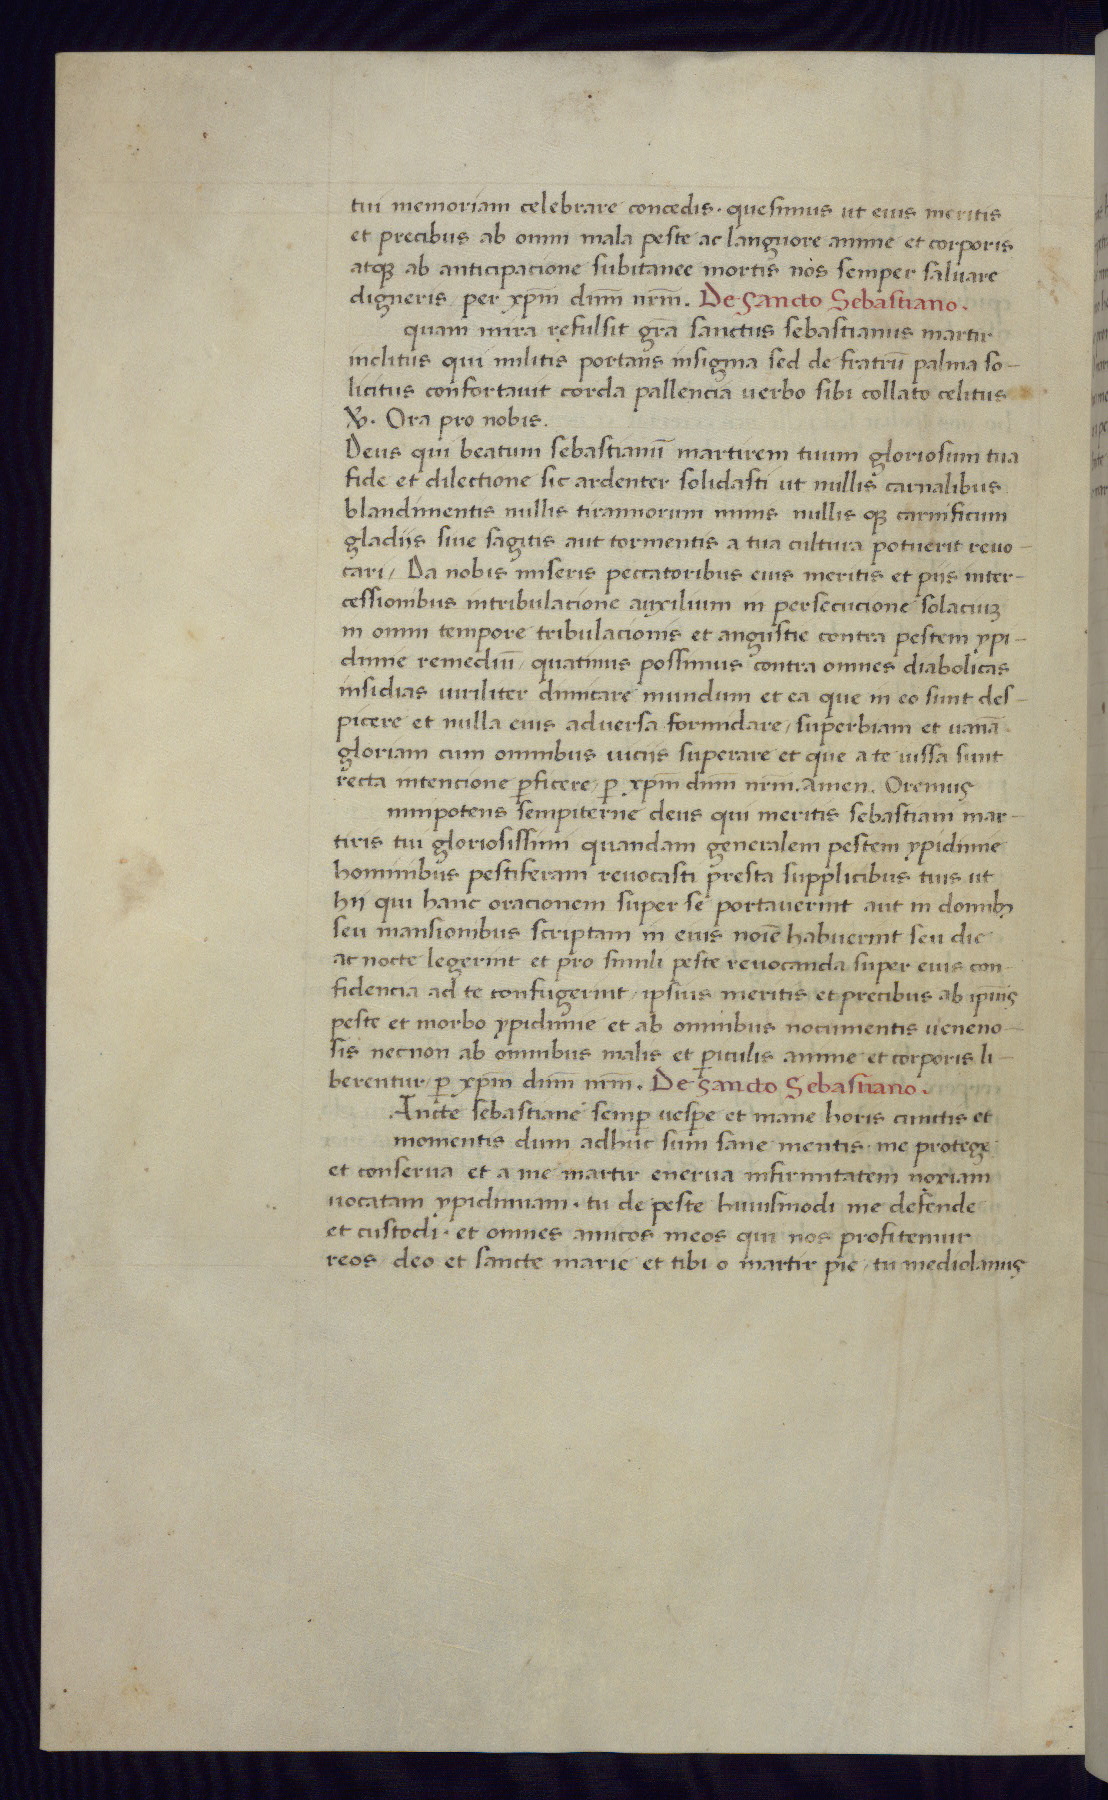 tui memoriam celebrare concedis · quesumus ut eius meritis
et precibus ab omni mala peste ac languore anime et corporis
atqꝫ ab anticipacione subitanee mortis nos semper saluare
digneris / per xp̄m dn̄m nr̄m. De Sancto Sebastiano.
quam mira refulsit gr̄a sanctus sebastianus martir
inclitus qui militis portans insignia sed de fratrū palma so-
licitus confortauit corda pallencia uerbo sibi collato celitus
℣. Ora pro nobis.
Deus qui beatum sebastianū martirem tuum gloriosum tua
fide et dilectione sic ardenter solidasti ut nullis carnalibus
blandimentis nullis tirannorum minis nullis qꝫ carnificum
gladiis siue sagitis aut tormentis a tua cultura potuerit reuo-
cari / Da nobis miseris peccatoribus eius meritis et piis inter-
cessionibus in tribulacione auxilium in persecucione solaciuꝫ
in omni tempore tribulacionis et angustie contra pestem ypi-
dimie remediū / quatinus possimus contra omnes diabolicas
insidias uiriliter dimicare mundum et ea que in eo sunt des-
picere et nulla eius aduersa formidare / superbiam et uanā
gloriam cum omnibus uiciis superare et que a te iussa sunt
recta intencione ꝑficere / ꝑ xp̄m dn̄m nr̄m. Amen. Oremus
mnipotens sempiterne deus qui meritis sebastiani mar-
tiris tui gloriosissimi quandam generalem pestem ypidimie
hominibus pestiferam reuocasti presta supplicibus tuis ut
hij qui hanc oracionem super se portauerint aut in domibꝫ
seu mansionibus scriptam in eius noīe habuerint seu die
ac nocte legerint et pro simili peste reuocanda super eius con-
fidencia ad te confugerint / ipsius meritis et precibus ab ip̄ius
peste et morbo ypidimie et ab omnibus nocumentis ueneno-
sis necnon ab omnibus malis et ꝑiculis anime et corporis li-
berentur / ꝑ xp̄m dn̄m nr̄m. De Sancto Sebastiano.
Ancte sebastiane semꝑ uesꝑe et mane horis cunctis et
momentis dum adhuc sum sane mentis · me protege
et conserua et a me martir enerua infirmitatem noxiam
uocatam ypidimiam · tu de peste huiusmodi me defende
et custodi · et omnes amicos meos qui nos profitemur
reos / deo et sancte marie et tibi o martir pie / tu mediolanus